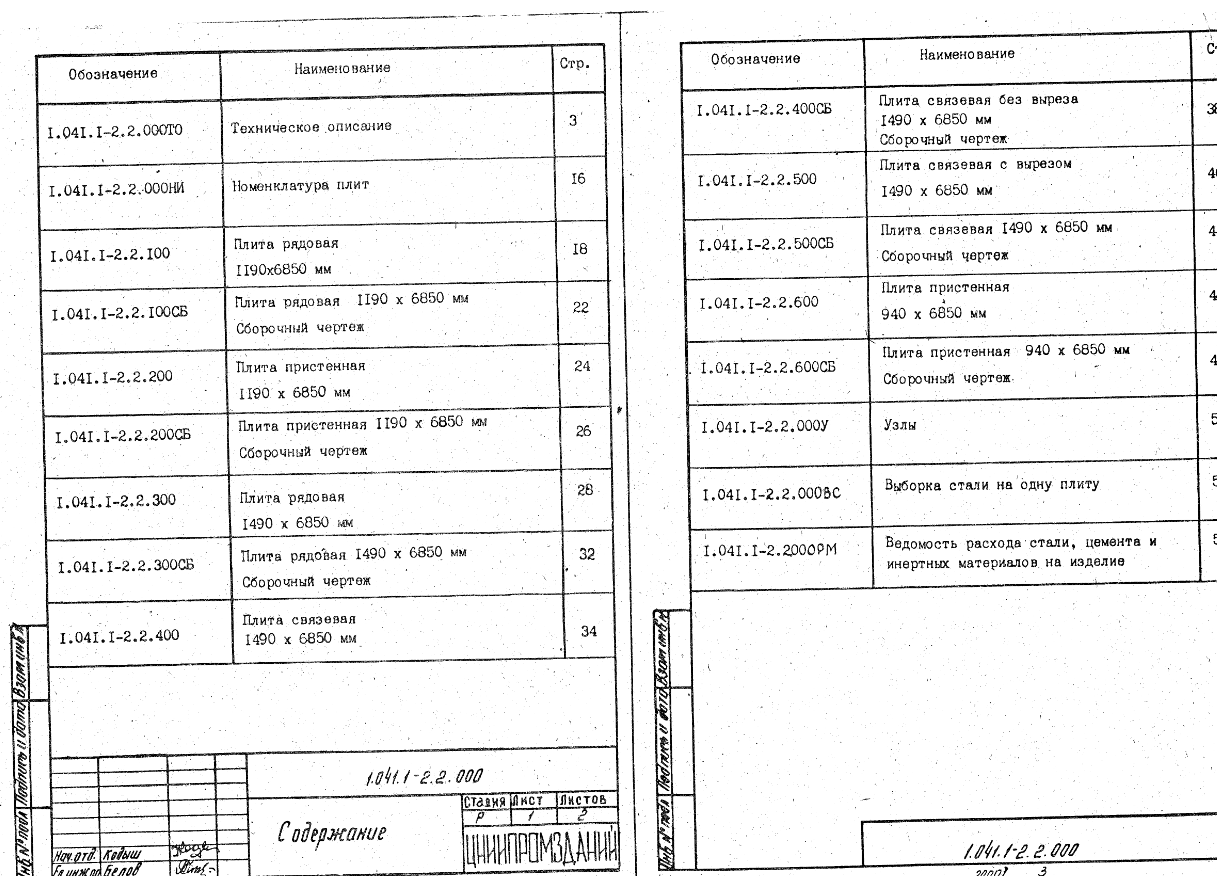 Обозначение Наименование Стр.
I.04I.I-2.2.000ТО Техническое описание 3
I.04I.I-2.2.000НИ Номенклатура плит I6
I.04I.I-2.2.I00 Плита рядовая I8
II90х6850 мм
I.04I.I-2.2.I00СБ Плита рядовая II90 х 6850 мм 22
Сборочный чертеж
I.04I.I-2.2.200 Плита пристенная 24
II90 х 6850 мм
I.04I.I-2.2.200СБ Плита пристенная II90 х 6850 мм 26
Сборочный чертеж
I.04I.I-2.2.300 Плита рядовая 28
I490 х 6850 мм
I.04I.I-2.2.300СБ Плита рядовая I490 х 6850 мм 32
Сборочный чертеж
I.04I.I-2.2.400 Плита связевая 34
I490 х 6850 мм
Взам инв №
Подпись и дата
Инв № подл
1.041.1-2.2.000
Содержание
Стадия Лист Листов
Р 1 2
ЦНИИПРОМЗДАНИЙ
Нач. отд. Кодыш
Гл инж пр Белов
Обозначение Наименование
I.04I.I-2.2.400СБ Плита связевая без выреза
I490 х 6850 мм
Сборочный чертеж
I.04I.I-2.2.500 Плита связевая с вырезом
I490 х 6850 мм
I.04I.I-2.2.500СБ Плита связевая I490 х 6850 мм
Сборочный чертеж
I.04I.I-2.2.600 Плита пристенная
940 х 6850 мм
I.04I.I-2.2.600СБ Плита пристенная 940 х 6850 мм
Сборочный чертеж
I.04I.I-2.2.000У Узлы
I.04I.I-2.2.000ВС Выборка стали на одну плиту
I.04I.I-2.2.000РМ Ведомость расхода стали, цемента и
инертных материалов на изделие
Взам инв №
Подпись и дата
Инв № подл
1.041.1-2.2.000
3